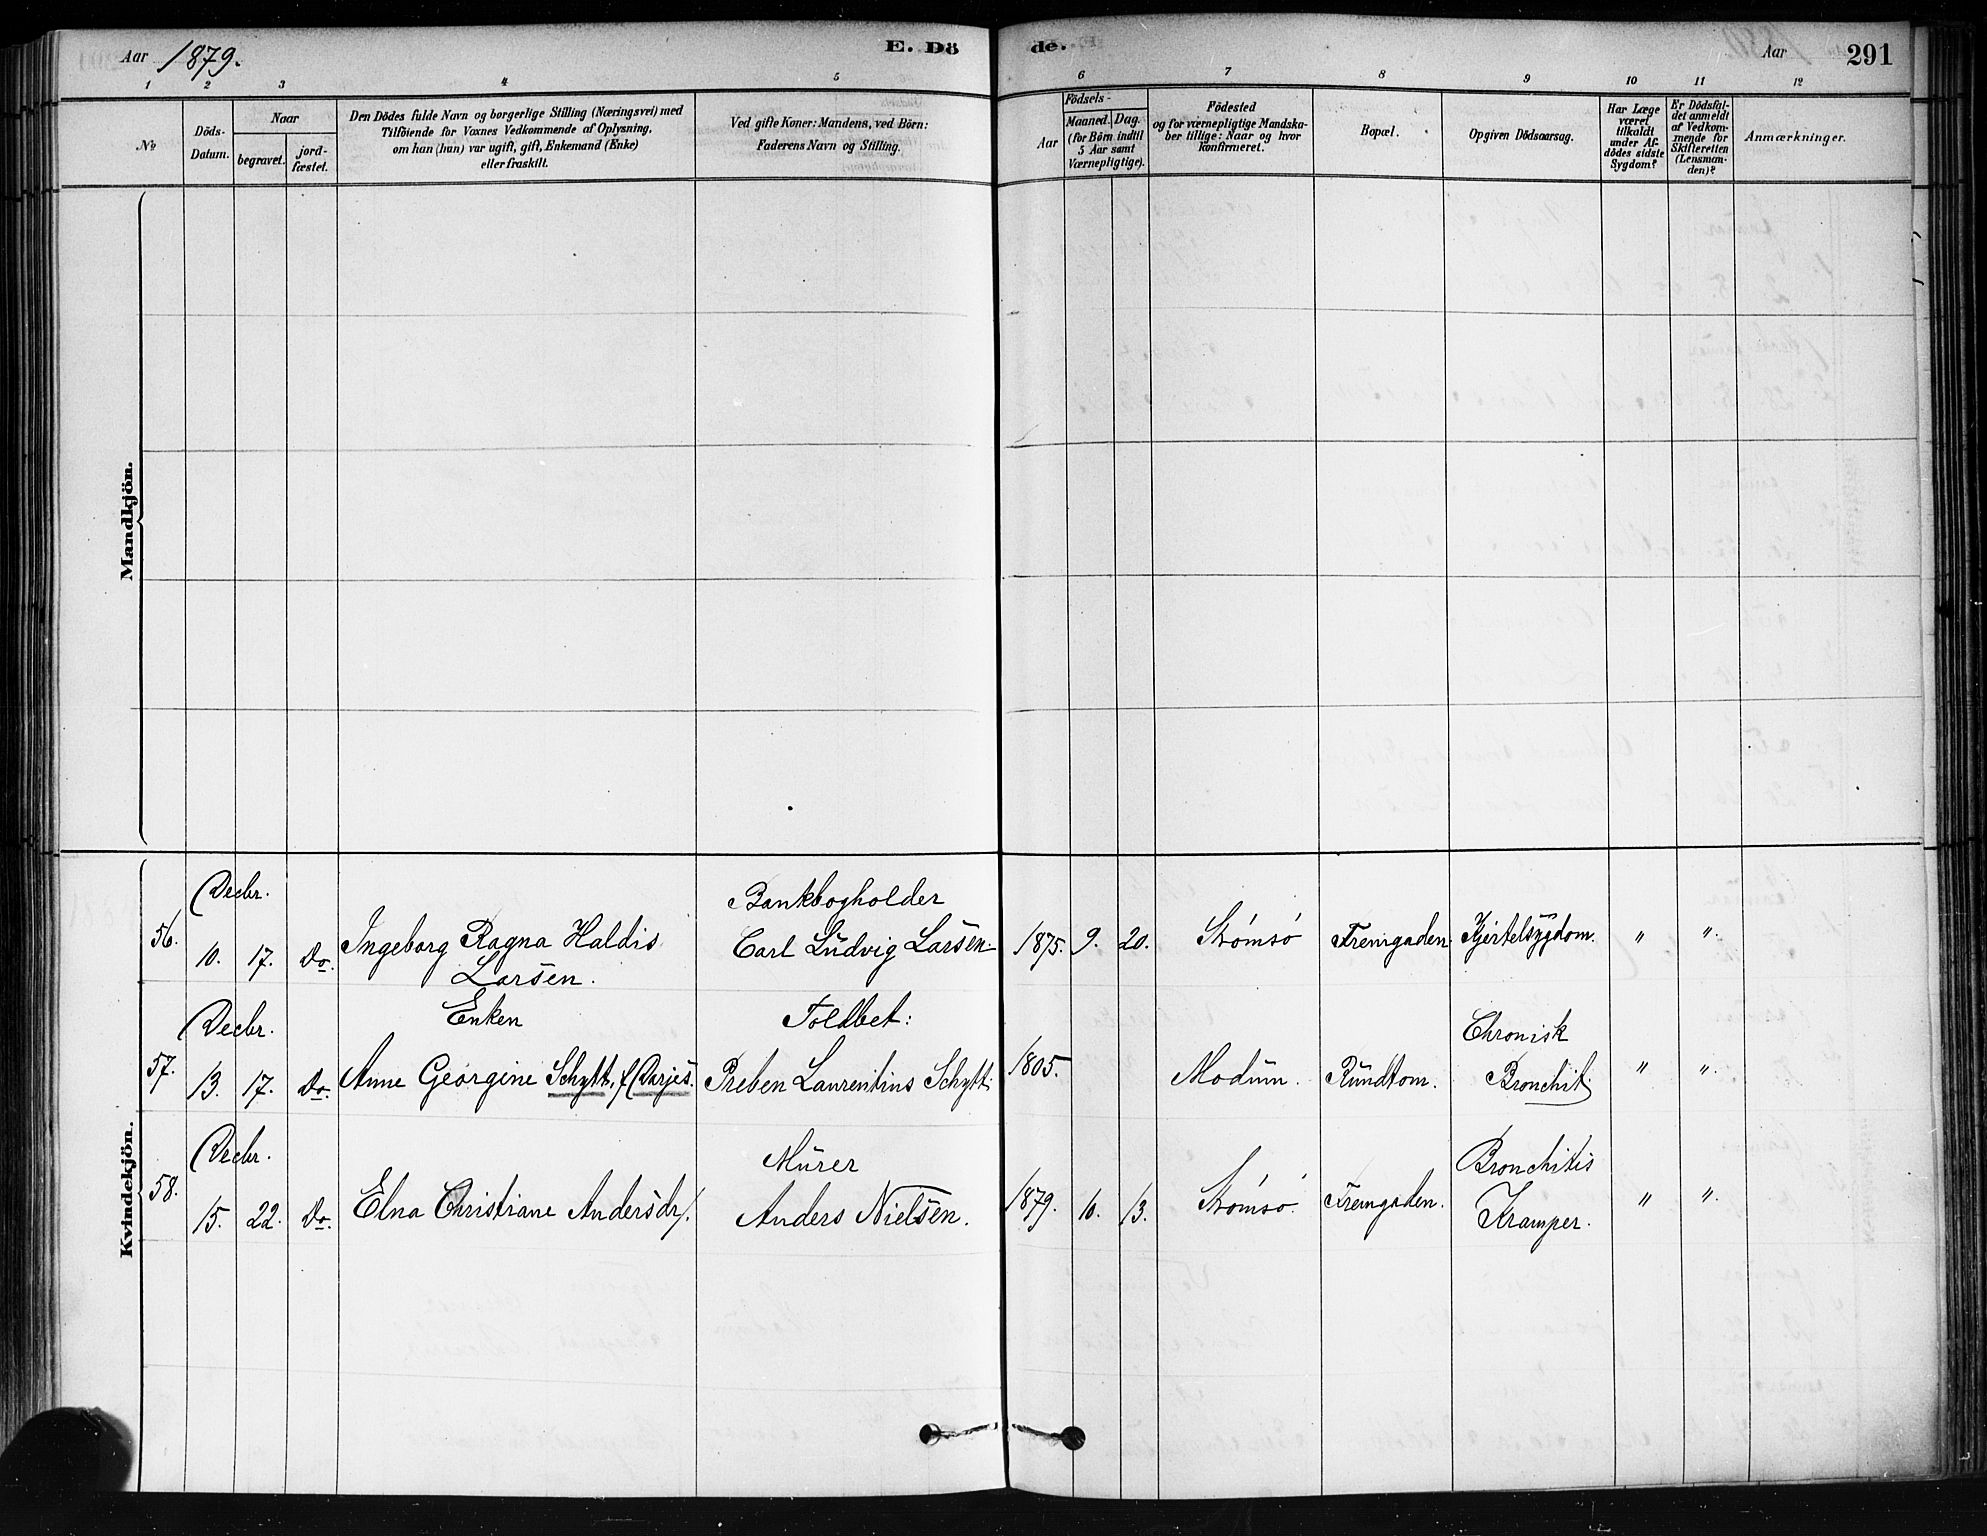 Aar 1879.
E. Dö
de.
Aar
291
1 2 3 4 5
6 7 8 9 10 11 12
No
Döds-
Datum.
Naar
begravet.
jord-
fæstet.
Den Dödes fulde Navn og borgerlige Stilling (Næringsvei) med
Tilföiende for Voxnes Vedkommende af Oplysning,
om han (hun) var ugift, gift, Enkemand (Enke)
eller fraskilt.
Ved gifte Koner: Mandens, ved Börn:
Faderens Navn og Stilling.
Födsels-
Aar
Maaned. Dag.
(for Börn indtil
5 Aar samt
Værnepligtige).
Födested
og for værnepligtige Mandska-
ber tillige: Naar og hvor
konfirmeret.
Bopæl.
Opgiven Dödsaarsag.
Har Læge
været
tilkaldt
under Af-
dödes sidste
Sygdom?
Er Dödsfal-
det anmeldt
af Vedkom-
mende for
Skifteretten
(Lensman-
den)?
Anmærkninger.
Mandkjön.
Kvindekjön.
Decbr. Bankbogholder
56. 10. 17. Do. Ingeborg Ragna Haldis Carl Ludvig Larsen. 1875. 9. 20. Strømsø Fremgaden. Kjertelsygdom. " ".
Larsen.
Decbr. Enken Toldbet: Chronisk
57. 13. 17. Do. Anne Georgine Schytt, f. Darjes. Preben Laurentius Schytt. 1805. Modum. Rundtom. Bronchit. " ".
Decbr. Murer Bronchitis
58. 15. 22. Do. Elna Christiane Andersdr/. Anders Nielsen. 1879. 10. 13. Strømsø. Fremgaden. Kramper. " ".